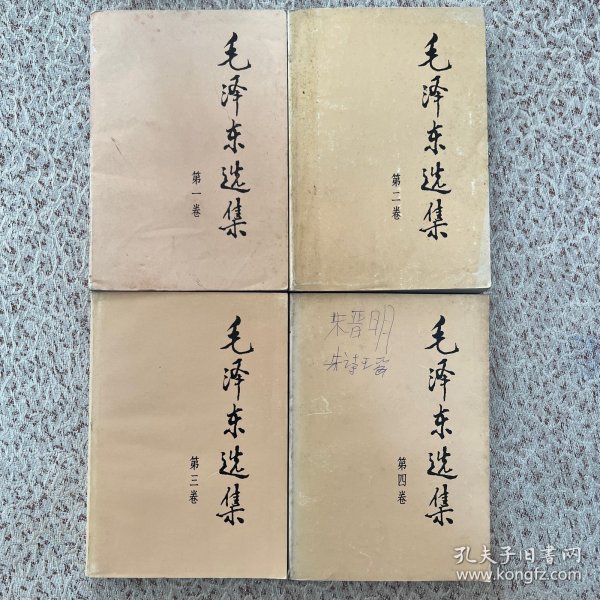 毛泽东选集
第一卷
毛泽东选集
第二卷
毛泽东选集
第三卷
朱晋明
朱诗瑶
毛泽东选集
第四卷
孔夫子旧书网
www.kongfz.com